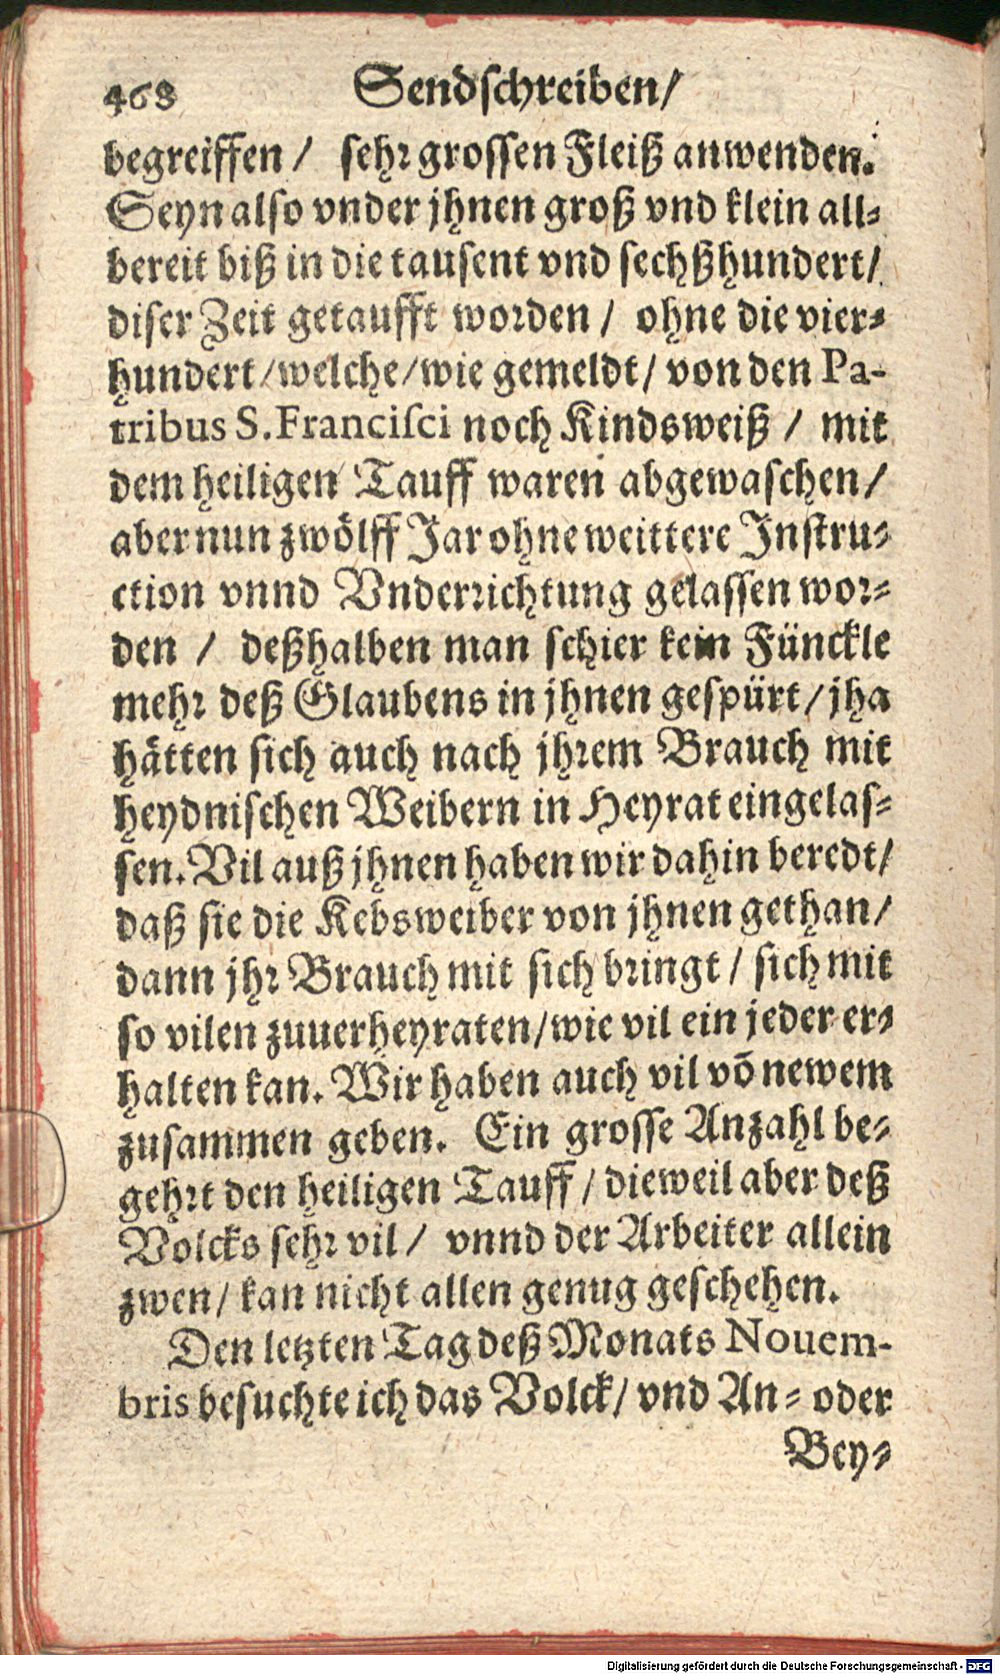 468 Sendschreiben/
begreiffen / sehr grossen Fleiß anwenden.
Seyn also vnder jhnen groß vnd klein all-
bereit biß in die tausent vnd sechßhundert/
diser Zeit getaufft worden / ohne die vier-
hundert/welche/wie gemeldt/ von den Pa-
tribus S. Francisci noch Kindsweiß / mit
dem heiligen Tauff waren abgewaschen/
aber nun zwölff Jar ohne weittere Instru-
ction vnnd Vnderrichtung gelassen wor-
den / deßhalben man schier kein Fünckle
mehr deß Glaubens in jhnen gespürt/ jha
hätten sich auch nach jhrem Brauch mit
heydnischen Weibern in Heyrat eingelas-
sen. Vil auß jhnen haben wir dahin beredt/
daß sie die Kebsweiber von jhnen gethan/
dann jhr Brauch mit sich bringt / sich mit
so vilen zuuerheyraten/wie vil ein jeder er-
halten kan. Wir haben auch vil võ newem
zusammen geben. Ein grosse Anzahl be-
gehrt den heiligen Tauff / dieweil aber deß
Volcks sehr vil / vnnd der Arbeiter allein
zwen/ kan nicht allen genug geschehen.
Den letzten Tag deß Monats Nouem-
bris besuchte ich das Volck/ vnd An- oder
Bey-
Digitalisierung gefördert durch die Deutsche Forschungsgemeinschaft - DFG